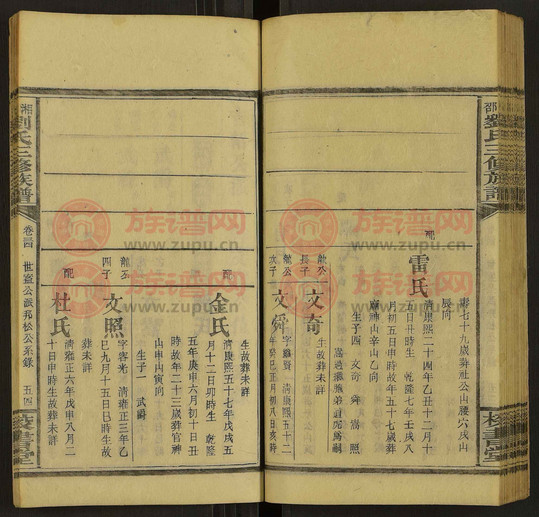 邵
劉氏三修族譜
校書堂
壽七十九歲葬社公山腰穴戌山
辰向
配
雷氏
清康熙二十四年乙丑十二月十
五日丑時生 乾隆七年壬戌八
月初五日申時故年五十七歲葬
廟神山辛山乙向
生子四 文奇 舜 嵩 照
獻公
長子
文奇
生故葬未詳
獻公
次子
文舜
字 賢 清康熙五十二
年癸巳正月初八日亥時
生故葬未詳
配
金氏
清康熙五十七年戊戌五
月十二日卯時生 乾隆
五年庚申六月初十日丑
時故年二十三歲葬官神
山申山寅向
生子一 武爵
獻公
四子
文照
字容光 清雍正三年乙
巳九月十五日巳時生故
葬未詳
配
杜氏
清雍正六年戊申八月二
十日申時生故葬未詳
湘
劉氏三修族譜
卷四
世盛公派邦松公系錄
五四
校書堂
族谱网
www.zupu.cn
族谱网
www.zupu.cn